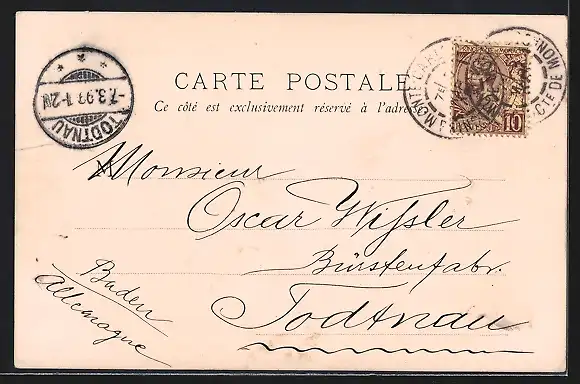 CARTE POSTALE
Ce côté est exclusivement réservé à l'adresse
TODTNAU
7.3.99.1-2N
MONTE CARLO
10
Monsieur
Oscar Wißler
Bürstenfabr.
Todtnau
Baden
Allemagne